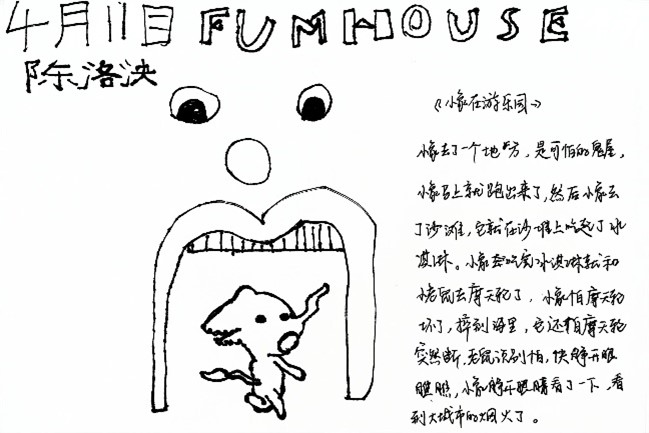 4月11日 FUMHOUSE
陈洛泱
《小象在游乐园》
小象去了一个地方，是可怕的鬼屋，
小象马上就跑出来了，然后小象去
了沙滩，它就在沙堆上吃起了冰
淇淋。小象吃完冰淇淋就和
老鼠去摩天轮了，小象怕摩天轮
坏了，摔到海里，它还怕摩天轮
突然断，老鼠说别怕，快睁开眼
瞧瞧，小象睁开眼睛看了一下，看
到大城市的烟火了。